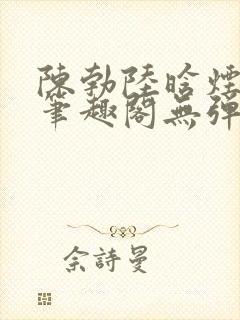 陳勃陸晗煙
筆趣閣無彈
佘詩曼